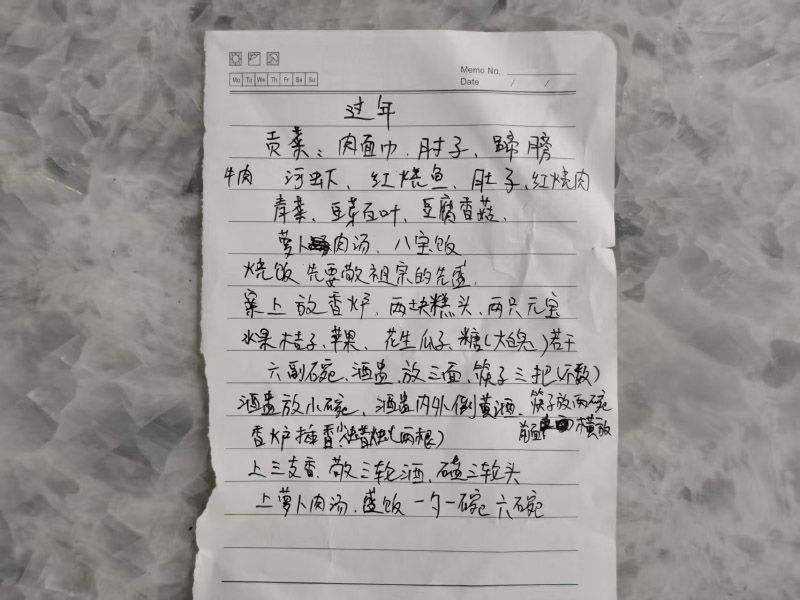 Memo No.
Mo Tu We Th Fr Sa Su
Date / /
过年
贡菜：肉面巾、肘子、蹄膀
牛肉 河虾、红烧鱼、肚子、红烧肉
青菜、豆芽百叶、豆腐香菇、
萝卜肉汤、八宝饭
烧饭先要敬祖宗的先盛
案上放香炉、两块糕头、两只元宝
水果桔子、苹果、花生瓜子、糖(大白兔)若干
六副碗、酒盅放三面、筷子三把(不数)
酒盅放小碗、酒盅内外倒黄酒、筷子放两碗
前面横放
香炉插香(蜡烛两根)
上三支香、敬三轮酒、磕三轮头
上萝卜肉汤、盛饭一勺一碗六碗